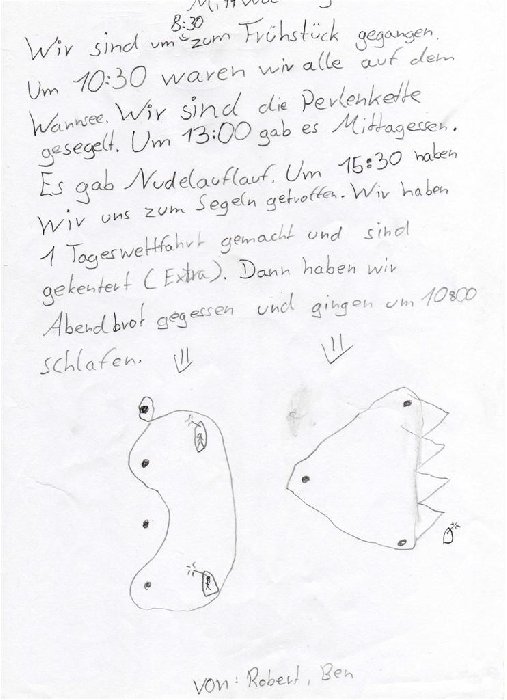 8:30
Wir sind um zum Frühstück gegangen.
Um 10:30 waren wir alle auf dem
Wannsee. Wir sind die Perlenkette
gesegelt. Um 13:00 gab es Mittagessen.
Es gab Nudelauflauf. Um 15:30 haben
Wir uns zum Segeln getroffen. Wir haben
1 Tageswettfahrt gemacht und sind
gekentert (Extra). Dann haben wir
Abendbrot gegessen und gingen um 10:00
schlafen.
von: Robert, Ben